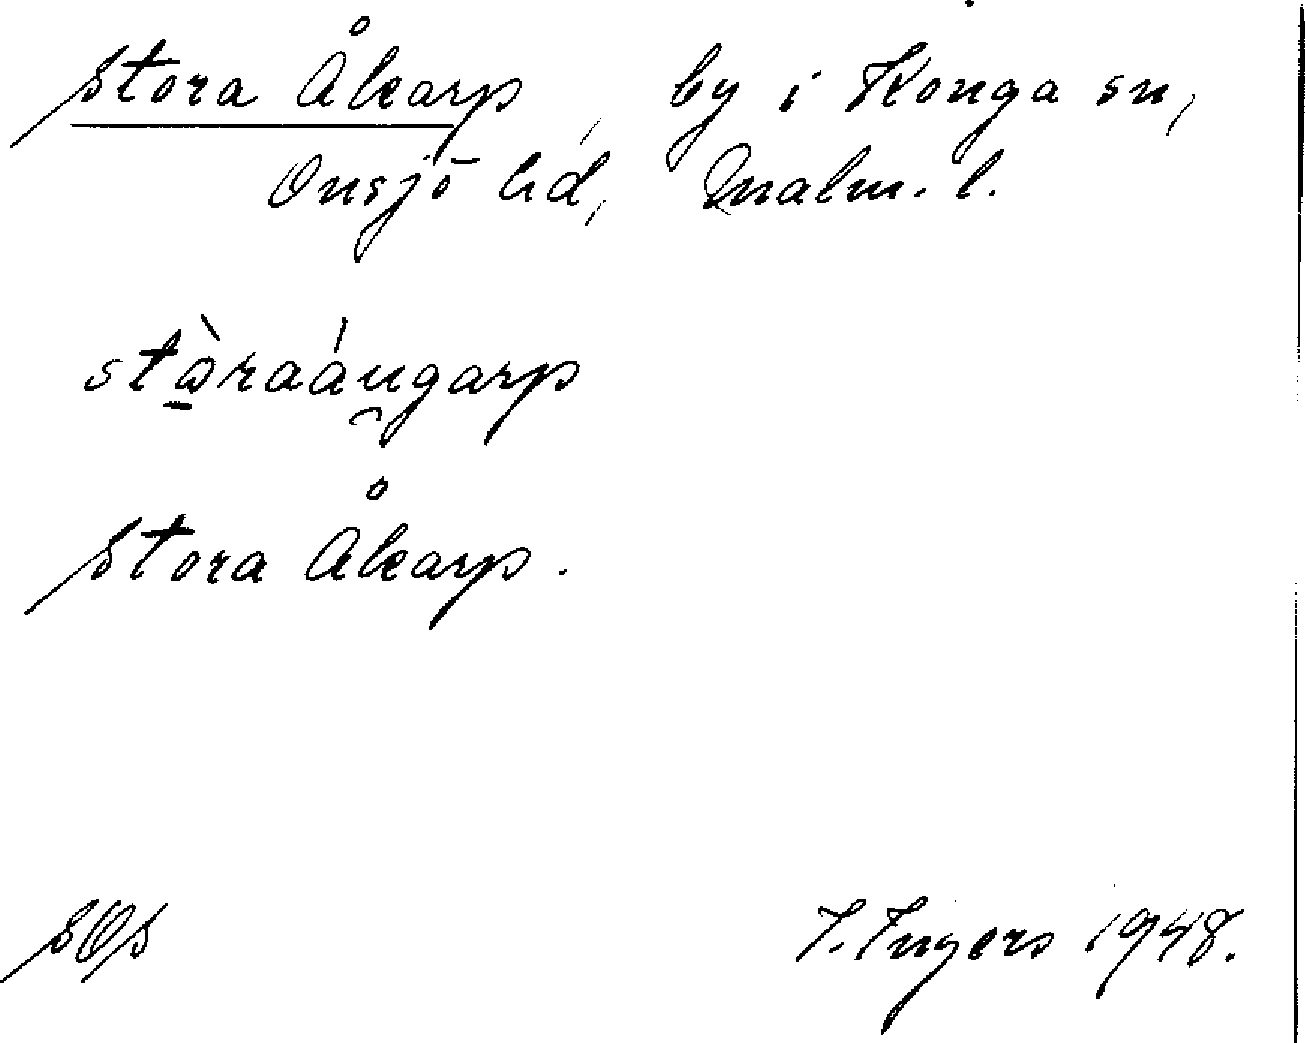 Stora Åkarp, by i Konga sn,
Onsjö hd, Malm. l.
stòraáugarp
Stora Åkarp.
SOS
I. Ingers 1948.